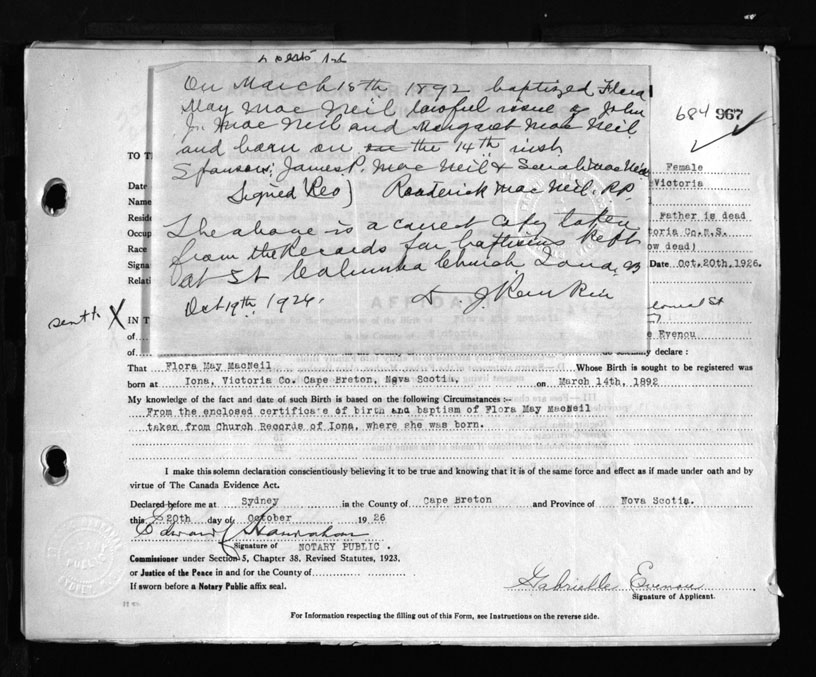 On March 15th 1892 baptized Flora
May MacNeil lawful issue of John
J. MacNeil and Margaret MacNeil
684 967
and born on the 14th inst
TO T
Sponsors; James P. MacNeil &
Female
Date
Victoria
Signed (Rev) Roaderick MacNeil. P.P.
Name
Resid
Father is dead
The above is a correct copy taken
Occup
toria Co.N.S.
from the Records for baptisms kept
Race
ow dead)
at St Columba Church Iona,
Signa
Date Oct.20th,1926.
Relati
Oct 19th, 1926.
X
St
IN T
e Evenou
of
of
declare :
That Flora May MacNeil Whose Birth is sought to be registered was
born at Iona, Victoria Co. Cape Breton, Nova Scotia, on March 14th, 1892
My knowledge of the fact and date of such Birth is based on the following Circumstances :-
From the enclosed certificate of birth and baptism of Flora May MacNeil
taken from Church Records of Iona, where she was born.
I make this solemn declaration conscientiously believing it to be true and knowing that it is of the same force and effect as if made under oath and by
virtue of The Canada Evidence Act.
Declared before me at Sydney in the County of Cape Breton and Province of Nova Scotia.
this 20th day of October 1926
Edward Hanrahan
Signature of NOTARY PUBLIC.
Commissioner under Section 5, Chapter 38, Revised Statutes, 1923,
or Justice of the Peace in and for the County of
If sworn before a Notary Public affix seal.
Gabrielle Evenou
Signature of Applicant.
For Information respecting the filling out of this Form, see Instructions on the reverse side.